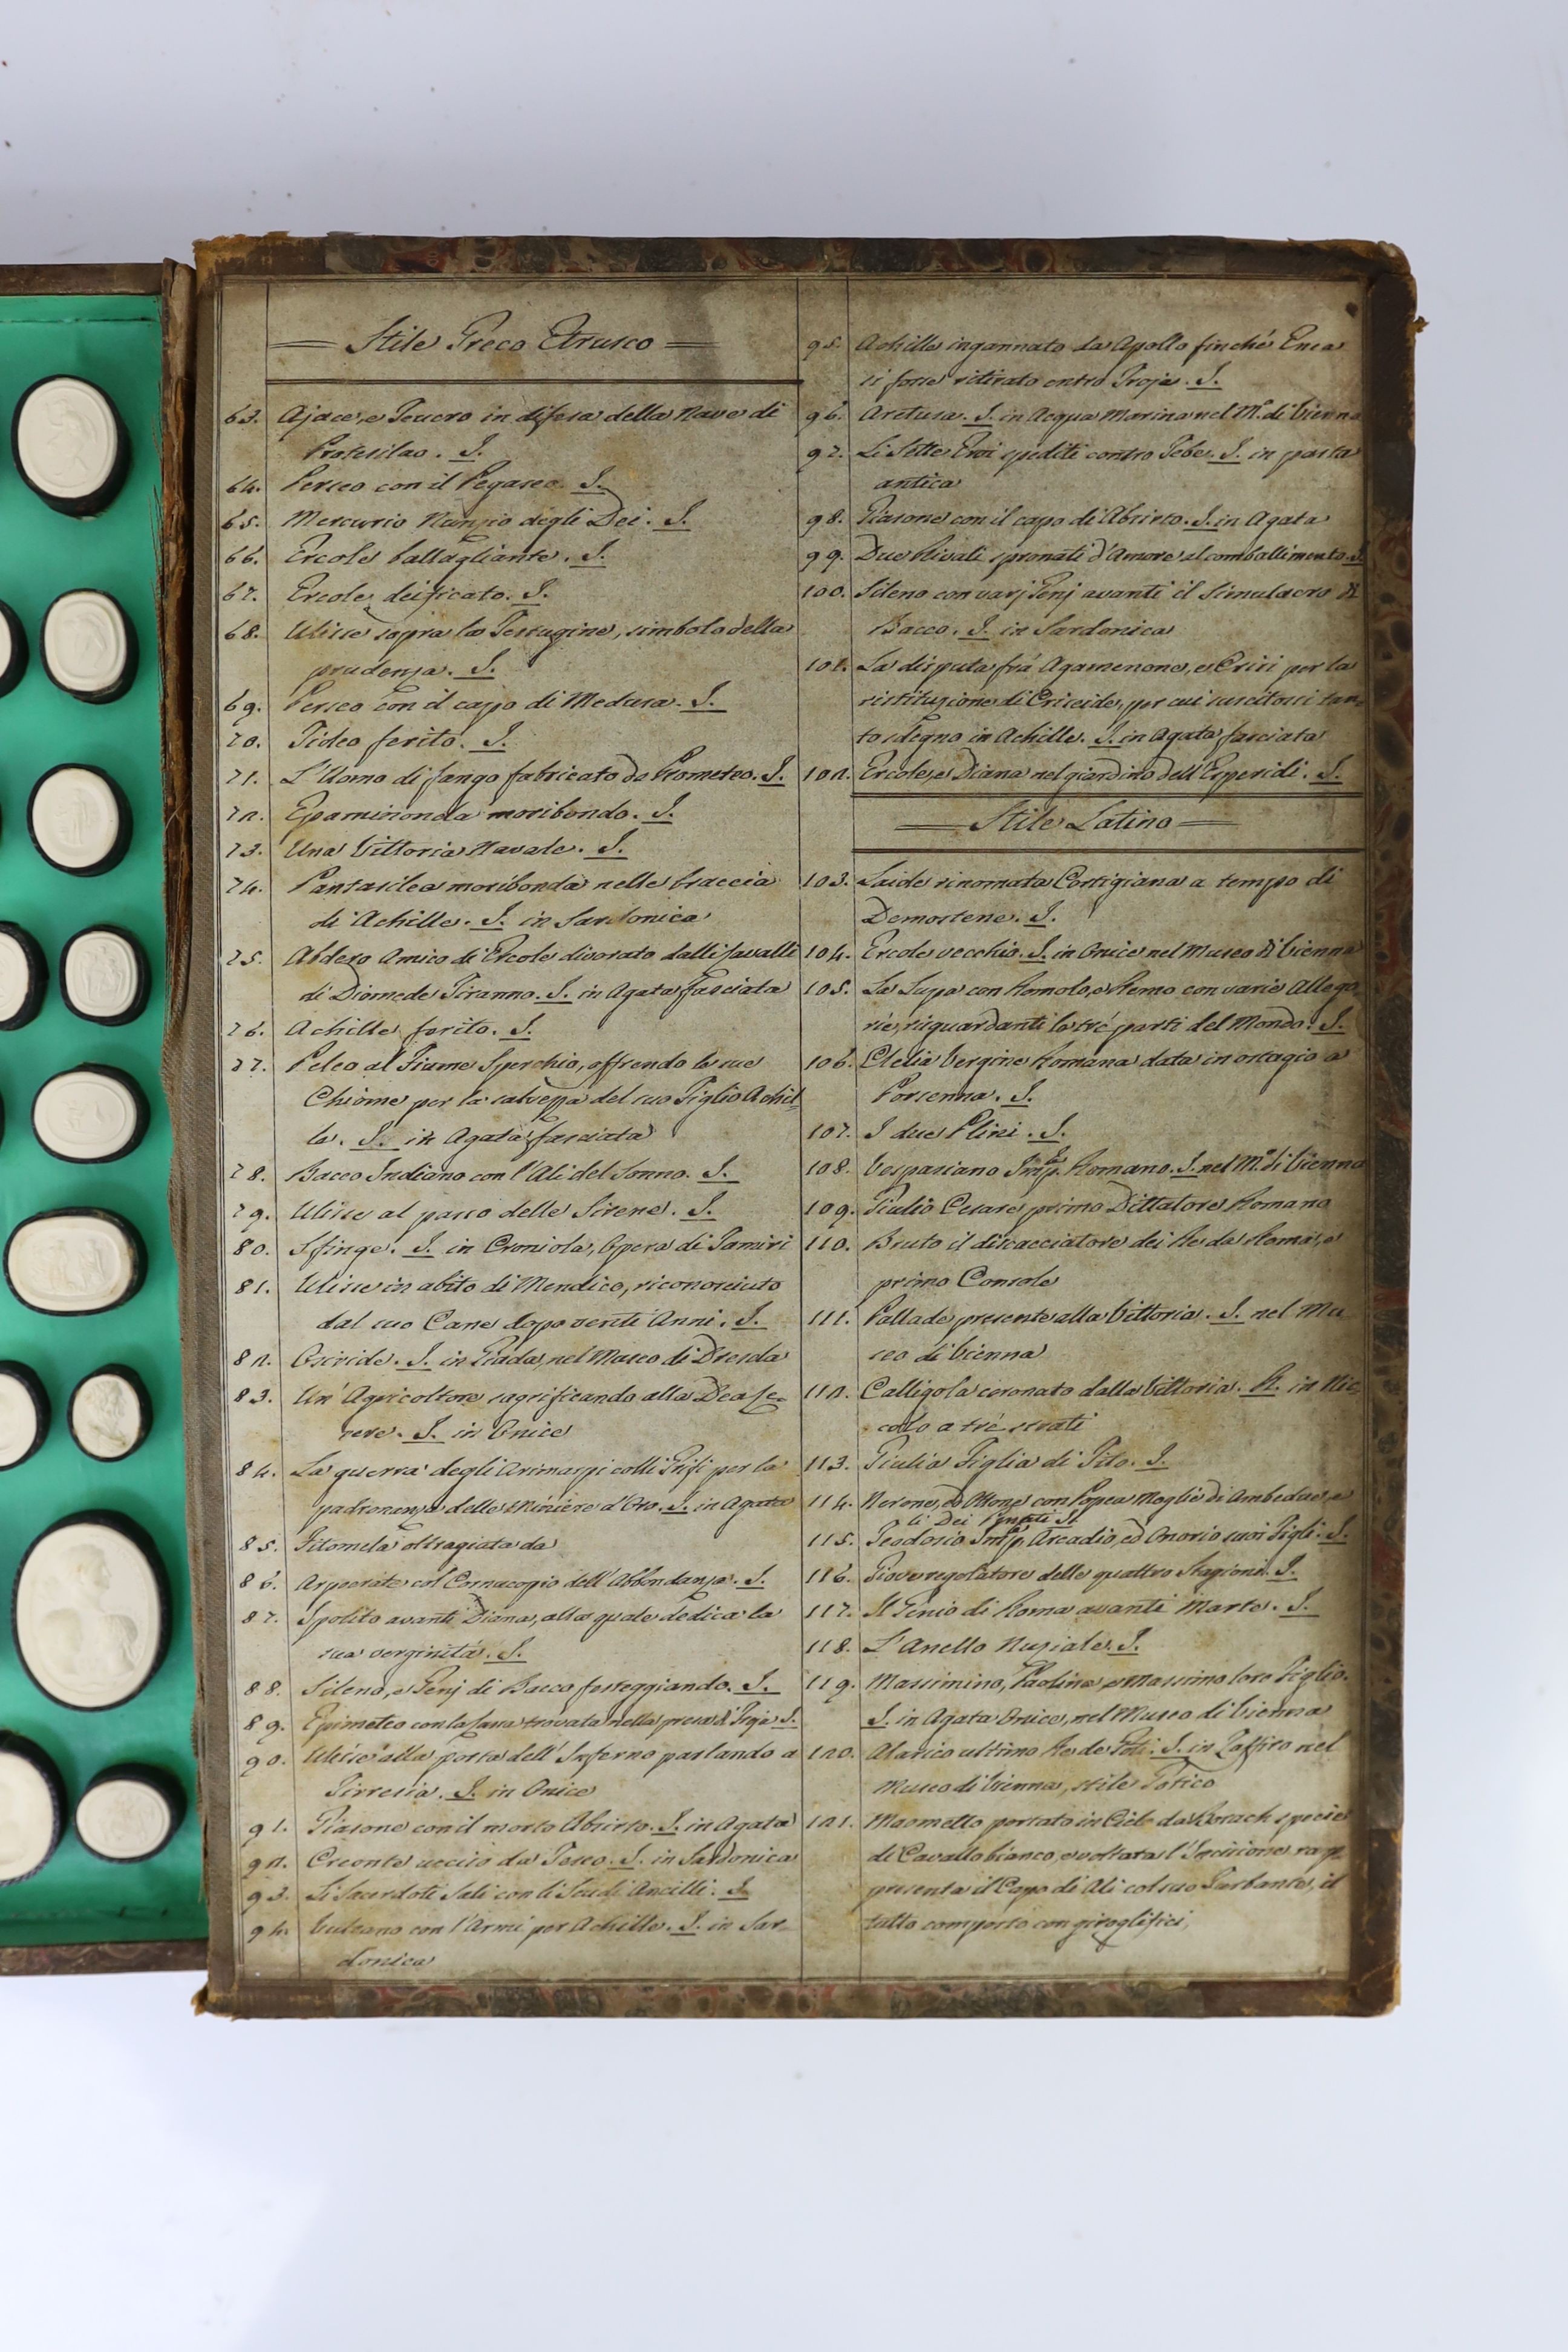 Stile Greco Etrusco
63. Ajace, e Teucro in difesa della Nave di
Protesilao. I.
64. Perseo con il Pegaseo. I.
65. Mercurio Nunzio degli Dei. I.
66. Ercole battagliante. I.
67. Ercole deificato. I.
68. Ulisse sopra la Testugine, simbolo della
prudenza. I.
69. Perseo con il capo di Medusa. I.
70. Tideo ferito. I.
71. L'Uomo di fango fabricato da Prometeo. I.
72. Epaminonda moribondo. I.
73. Una Vittoria Navale. I.
74. Pantasilea moribonda nelle braccia
di Achille. I. in Sardonica
75. Abdero Amico di Ercole divorato dalli Cavalli
di Diomede Tiranno. I. in Agata fasciata
76. Achille ferito. I.
77. Peleo al Fiume Sperchio, offrendo le sue
Chiome per la salvezza del suo Figlio Achil
le. I. in Agata fasciata
78. Bacco Indiano con l'Ali del Sonno. I.
79. Ulisse al passo delle Sirene. I.
80. Sfinge. I. in Croniola, Opera di Tamiri
81. Ulisse in abito di Mendico, riconosciuto
dal suo Cane dopo venti Anni. I.
82. Osiride. I. in Giada, nel Museo di Dresda
83. Un' Agricoltore sagrificando alla Dea Ce=
rere. I. in Onice
84. La guerra degli Arimaspi colli Grifi per la
padronanza delle Miniere d'Oro. I. in Agata
85. Filomela oltragiata da
86. Arpocrate col Cornucopio dell'Abbondanza. I.
87. Ipolito avanti Diana, alla quale dedica la
sua verginità. I.
88. Sileno, e Genj di Bacco festeggiando. I.
89. Epimeteo con la Cassa trovata nella presa di Troja I.
90. Ulisse alla porta dell' Inferno parlando a
Tirresia. I. in Onice
91. Giasone con il morto Absirto. I. in Agata
92. Creonte ucciso da Teseo. I. in Sardonica
93. Li Sacerdoti Sali con li Scudi Ancilli. I.
94. Vulcano con l'Armi per Achille. I. in Sar=
donica
95. Achille ingannato da Apollo finché Enea
si fosse ritirato entro Troja. I.
96. Aretusa. I. in Acqua Marina nel M.º di Vienna
97. Li Sette Eroi spediti contro Tebe. I. in pasta
antica
98. Giasone con il capo di Absirto. I. in Agata
99. Due Rivali spronati d'Amore al combattimento. I.
100. Sileno con varj Genj avanti il Simulacro di
Bacco. I. in Sardonica
101. La disputa frà Agamenone, e Crisi per la
ristituzione di Criseide, per cui suscitossi tan=
to sdegno in Achille. I. in Agata fasciata
102. Ercole, e Diana nel giardino dell'Esperidi. I.
Stile Latino
103. Laide rinomata Cortigiana a tempo di
Demostene. I.
104. Ercole vecchio. I. in Onice nel Museo di Vienna
105. La Lupa con Romolo, e Remo con varie Allego=
rie, riguardanti le tré parti del Mondo. I.
106. Clelia Vergine Romana data in ostagio a
Porsenna. I.
107. I due Plini. I.
108. Vespasiano Imp.e Romano. I. nel M.º di Vienna
109. Giulio Cesare primo Dittatore Romano
110. Bruto il discacciatore dei Re da Roma, e
primo Console
111. Pallade presente alla Vittoria. I. nel Mu
seo di Vienna
112. Calligola coronato dalla Vittoria. R. in Nic
colo a tré strati
113. Giulia Figlia di Tito. I.
114. Nerone, ed Ottone con Popea Moglie di Ambedue, e
li Dei Penati I.
115. Teodosio Imp.e, Arcadio, ed Onorio suoi Figli. I.
116. Giove regolatore delle quattro Stagioni. I.
117. Il Genio di Roma avanti Marte. I.
118. L'Anello Nuziale. I.
119. Massimino, Paolina, e Massimo loro Figlio.
I. in Agata Onice, nel Museo di Vienna
120. Alarico ultimo Re de Goti. I. in Zaffiro nel
Museo di Vienna, stile Gotico
121. Maometto portato in Cielo da Borach specie
di Cavallo bianco, e voltata l'Incisione rap
presenta il Capo di Ali col suo Turbante, il
tutto composto con giroglifici,